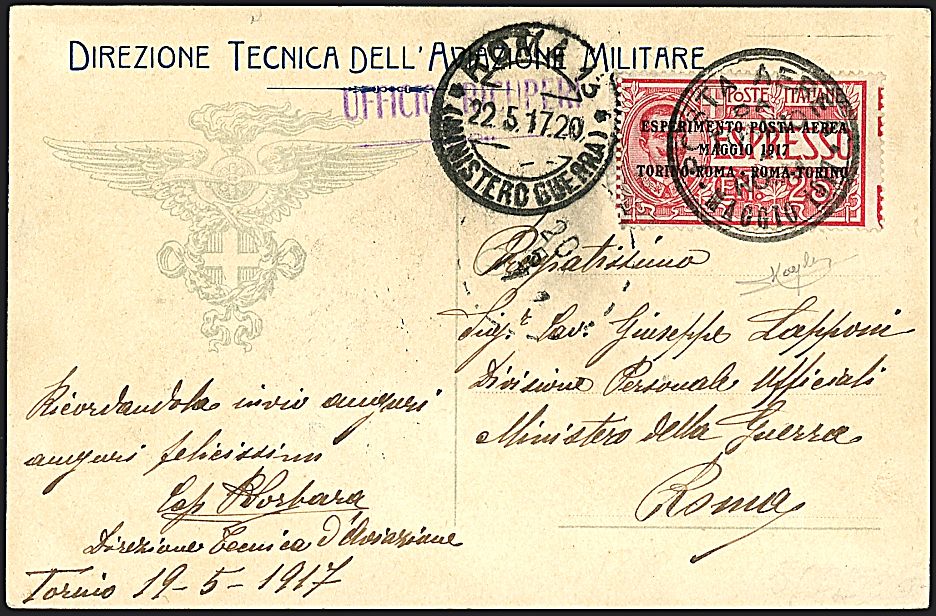 DIREZIONE TECNICA DELL'AVIAZIONE MILITARE
UFFICIO
ROMA
22.5.17.20
(MINISTERO GUERRA)
POSTE ITALIANE
ESPERIMENTO POSTA AEREA
MAGGIO 1917
TORINO-ROMA · ROMA-TORINO
ESPRESSO
POSTA AEREA
MAGGIO 1917
Pregiatissimo
Sigr. Cav. Giuseppe Lapponi
Divisione Personale Ufficiali
Ministero della Guerra
Roma
Ricordandola invio auguri
auguri felicissimi
Cap
Direzione Tecnica d'Aviazione
Torino 19-5-1917